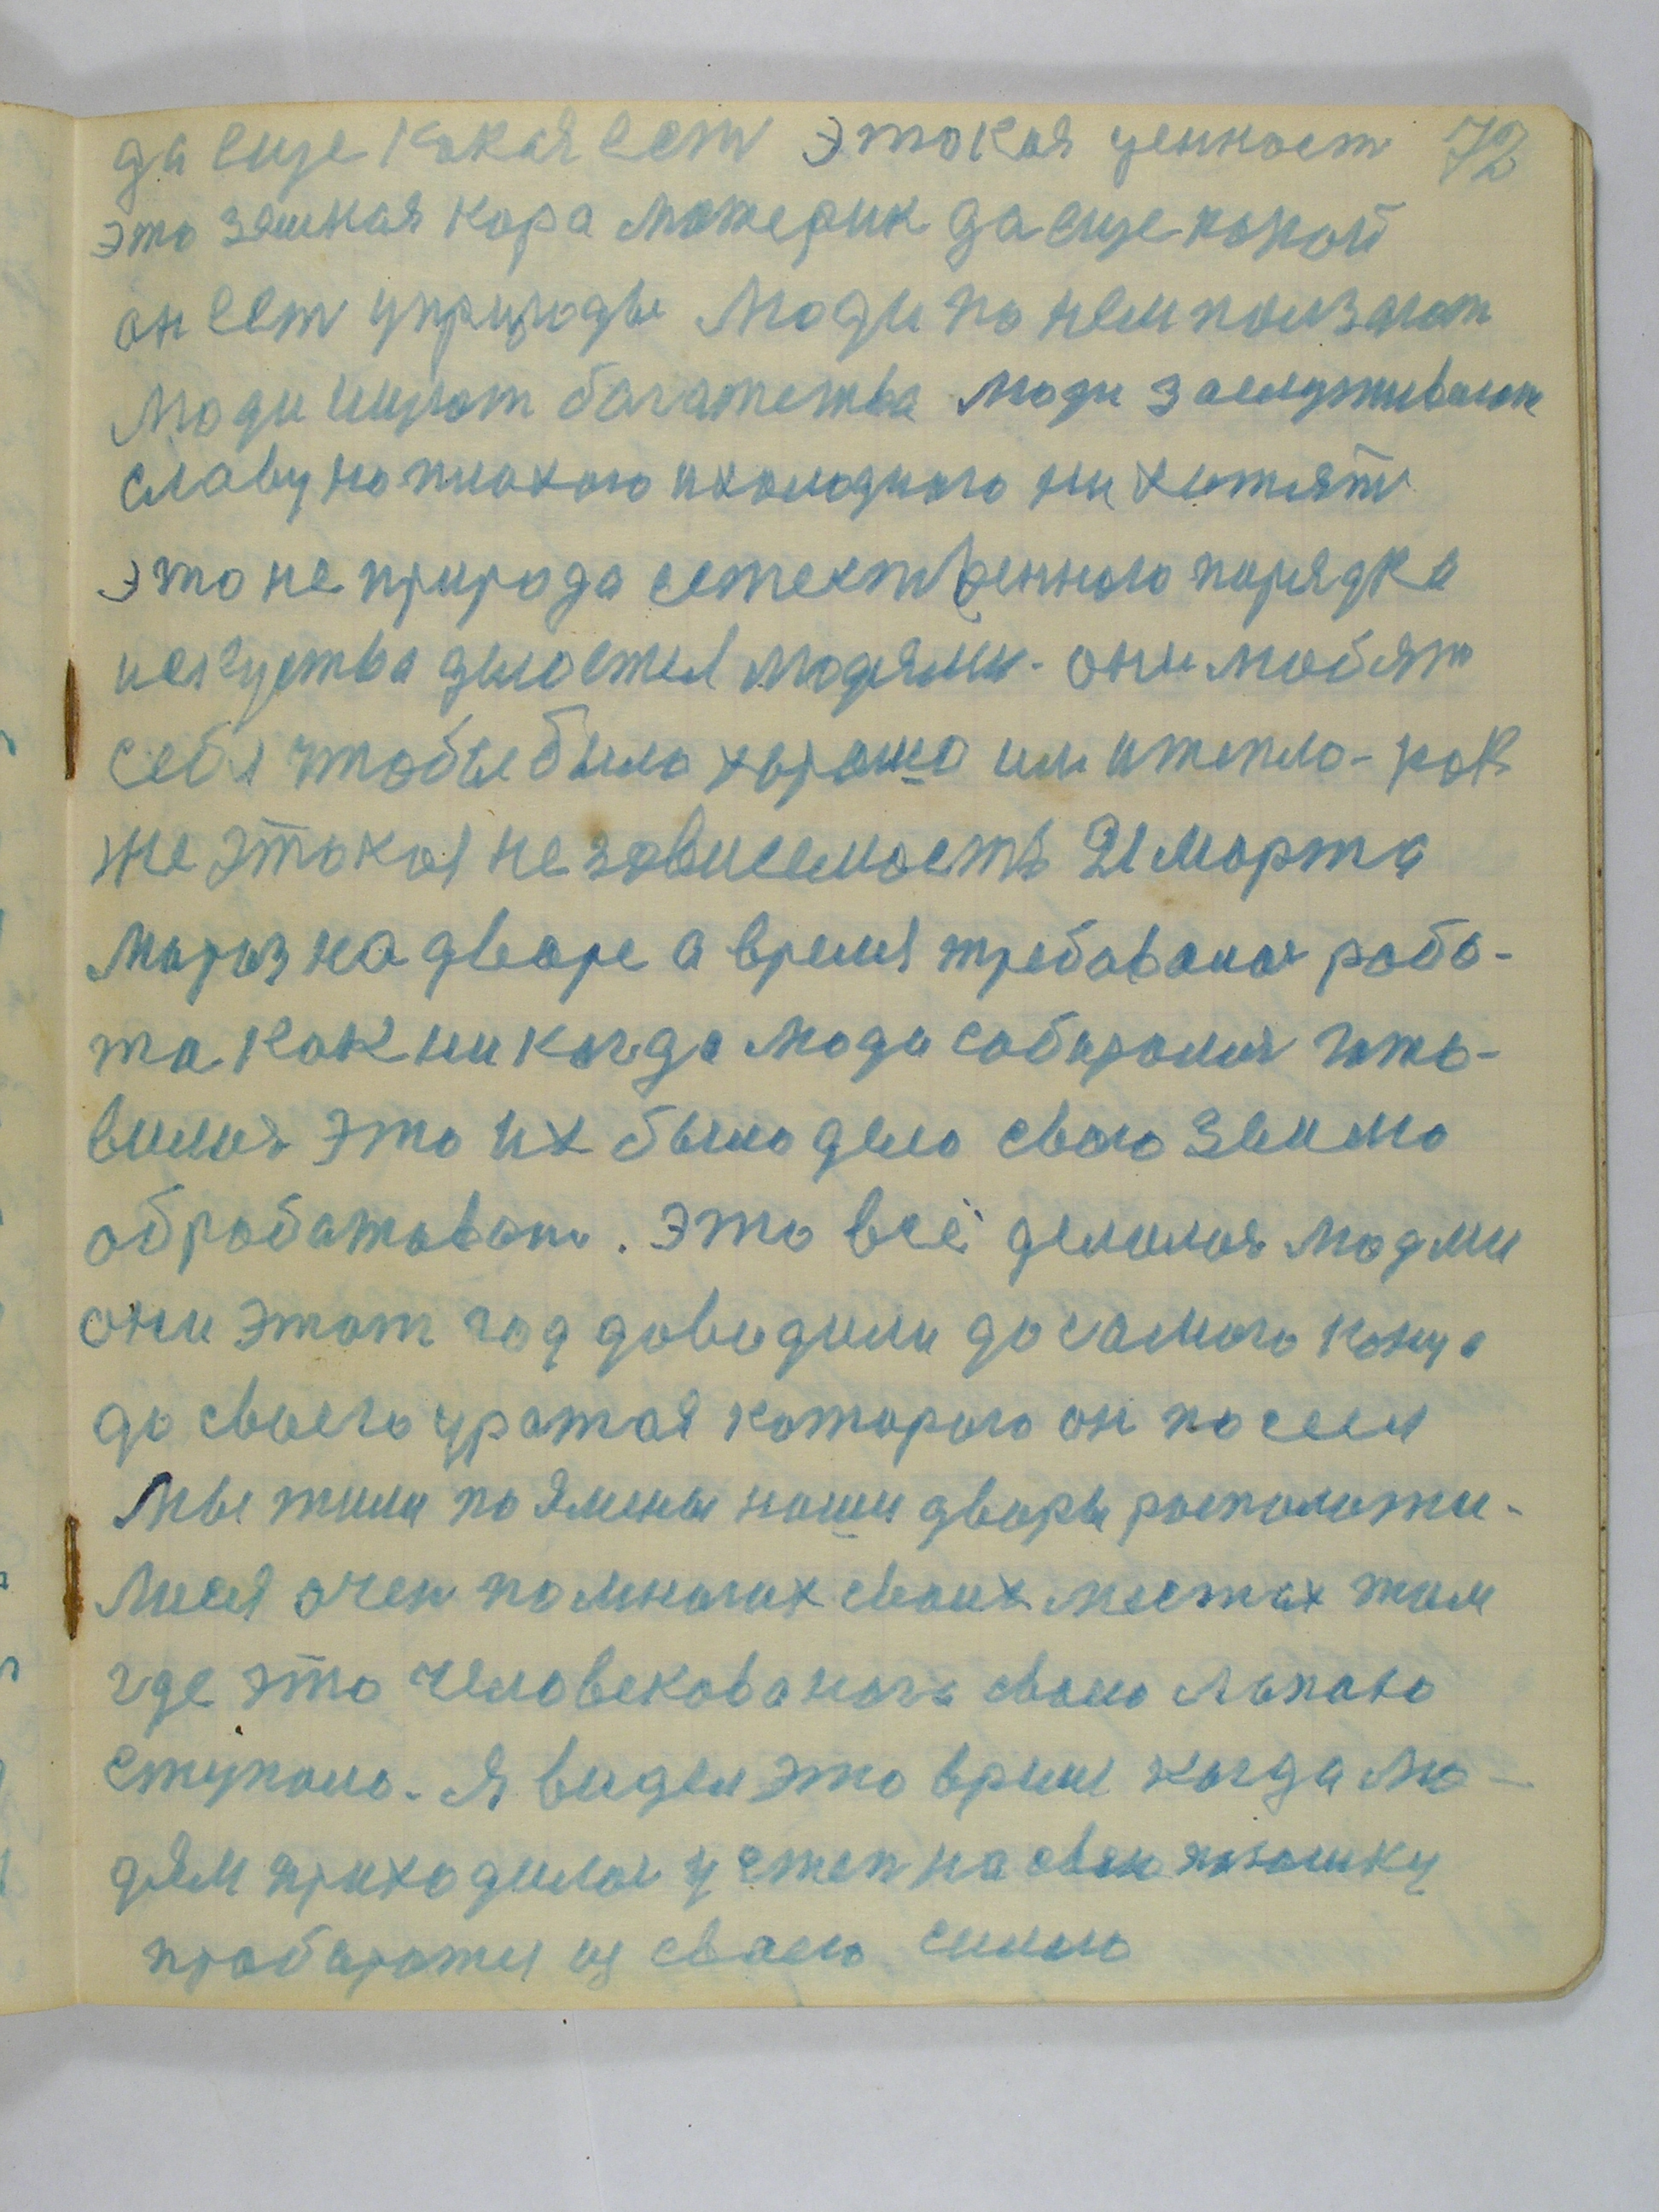 да еще какая ест этокая ценност 72
это земная кора материк да еще какой
он ест уприроды люди по нем ползают
люди ищют багатства люди заслуживают
славу но плохого ихолодного ни хитят
это не природа естехственного порядка
исгуства делоетея людями. они любят
себя чтобы было харашо им итепло - как
же этокоя независемость 21 марта
мароз на дваре а время требавалая рабо-
та как никагда люди сабиралия гато-
вилия это их было дело сваю землю
обрабатоват. Это всё делалоя людми
они этот год даводили до самого конца
до своего уратая которого он посеял
Мы жили по ямены наши дворы располажи-
лися очен по многих своих местах там
где это человекова нага сваею лапаю
ступало. Я видел это время когда лю-
дям приходилос у степ на сваю пазашку
прабаратея из сваею силаю